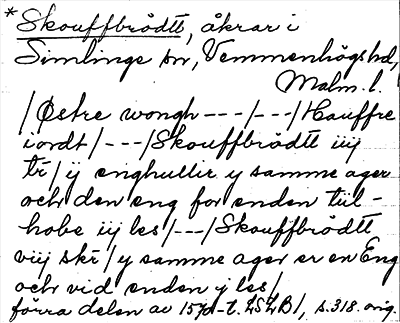 * Skouffbrådtt, åkrar i
Simlinge sn, Vemmenhögs hd,
Malm. l.
/Østre wongh ---/---/Hauffre
iordt/---/Skouffbrådtt iiij
tr/ ij enghullir y samme ager
och den eng for enden tiil-
hobe iij les/---/Skouffbrådtt
viij skr/ y samme ager er en Eng
och vid enden ij les/
förra delen av 1570-t. LSLB1, s.318. orig.